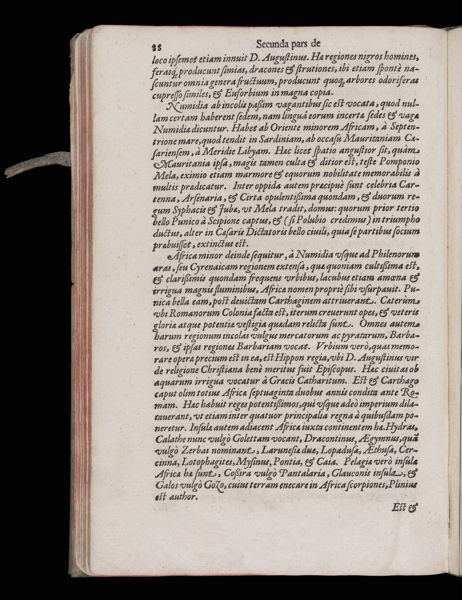 88 Secunda pars de
loco ipsemet etiam innuit D. Augustinus. Hæ regiones nigros homines,
ferasq; producunt simias, dracones & strutiones, ibi etiam spontè na-
scuntur omnia genera fructuum, producunt quoq; arbores odoriferas
cupresso similes, & Euforbium in magna copia.
Numidia ab incolis passim vagantibus sic est vocata, quod nul-
lam certam haberent sedem, nam linguâ eorum incerta sedes & vaga
Numidia dicuntur. Habet ab Oriente minorem Africam, à Septen-
trione mare, quod tendit in Sardiniam, ab occasu Mauritaniam Cæ-
sariensem, à Meridie Libyam. Hæc licet spatio angustior sit, quàm
Mauritania ipsa, magis tamen culta & ditior est, teste Pomponio
Mela, eximio etiam marmore & equorum nobilitate memorabilis à
multis prædicatur. Inter oppida autem præcipuè sunt celebria Car-
tenna, Arsenaria, & Cirta opulentissima quondam, & duorum re-
gum Syphacis & Jubæ, vt Mela tradit, domus: quorum prior tertio
bello Punico à Scipione captus, & (si Polubio credimus) in triumpho
ductus, alter in Cæsaris Dictatoris bello ciuili, quia se partibus socium
præbuisset, extinctus est.
Africa minor deinde sequitur, à Numidia vsque ad Philenorum
aras, seu Cyrenaicam regionem extensa, qua quoniam cultissima est,
& clarissimis quondam frequens vrbibus, lacubus etiam amœna &
irrigua magnis fluminibus, Africæ nomen propriè sibi vsurpauit. Pu-
nica bella eam, post deuictam Carthaginem attriuerant. Cæterùm
vbi Romanorum Colonia facta est, iterum creuerunt opes, & veteris
gloriæ atque potentiæ vestigia quædam relicta sunt. Omnes autem
harum regionum incolas vulgus mercatorum ac pyratarum, Barba-
ros, & ipsas regiones Barbariem vocat. Vrbium verò, quas memo-
rare operæ precium est in ea, est Hippon regia, vbi D. Augustinus vir
de religione Christiana benè meritus fuit Episcopus. Hæc ciuitas ob
aquarum irrigua vocatur à Græcis Catharitum. Est & Carthago
caput olim totius Africæ septuaginta duobus annis condita ante Ro-
mam. Hæc habuit reges potentissimos, qui vsque adeò imperium dila-
tauerant, vt etiam inter quatuor principalia regna à quibusdam po-
neretur. Insulæ autem adiacent Africæ iuxta continentem hæ. Hydras,
Calathe nunc vulgò Golettam vocant, Dracontinus, Ægymnus, quã
vulgò Zerbas nominant, Larunesiæ duæ, Lopadusa, Æthusa, Cer-
cinna, Lotophagites, Mysinus, Pontia, & Caia. Pelagiæ verò insulæ
Africæ hæ sunt, Cosira vulgò Pantalaria, Glauconis insula, &
Galos vulgò Gozo, cuius terram enecare in Africa scorpiones, Plinius
est author.
Est &